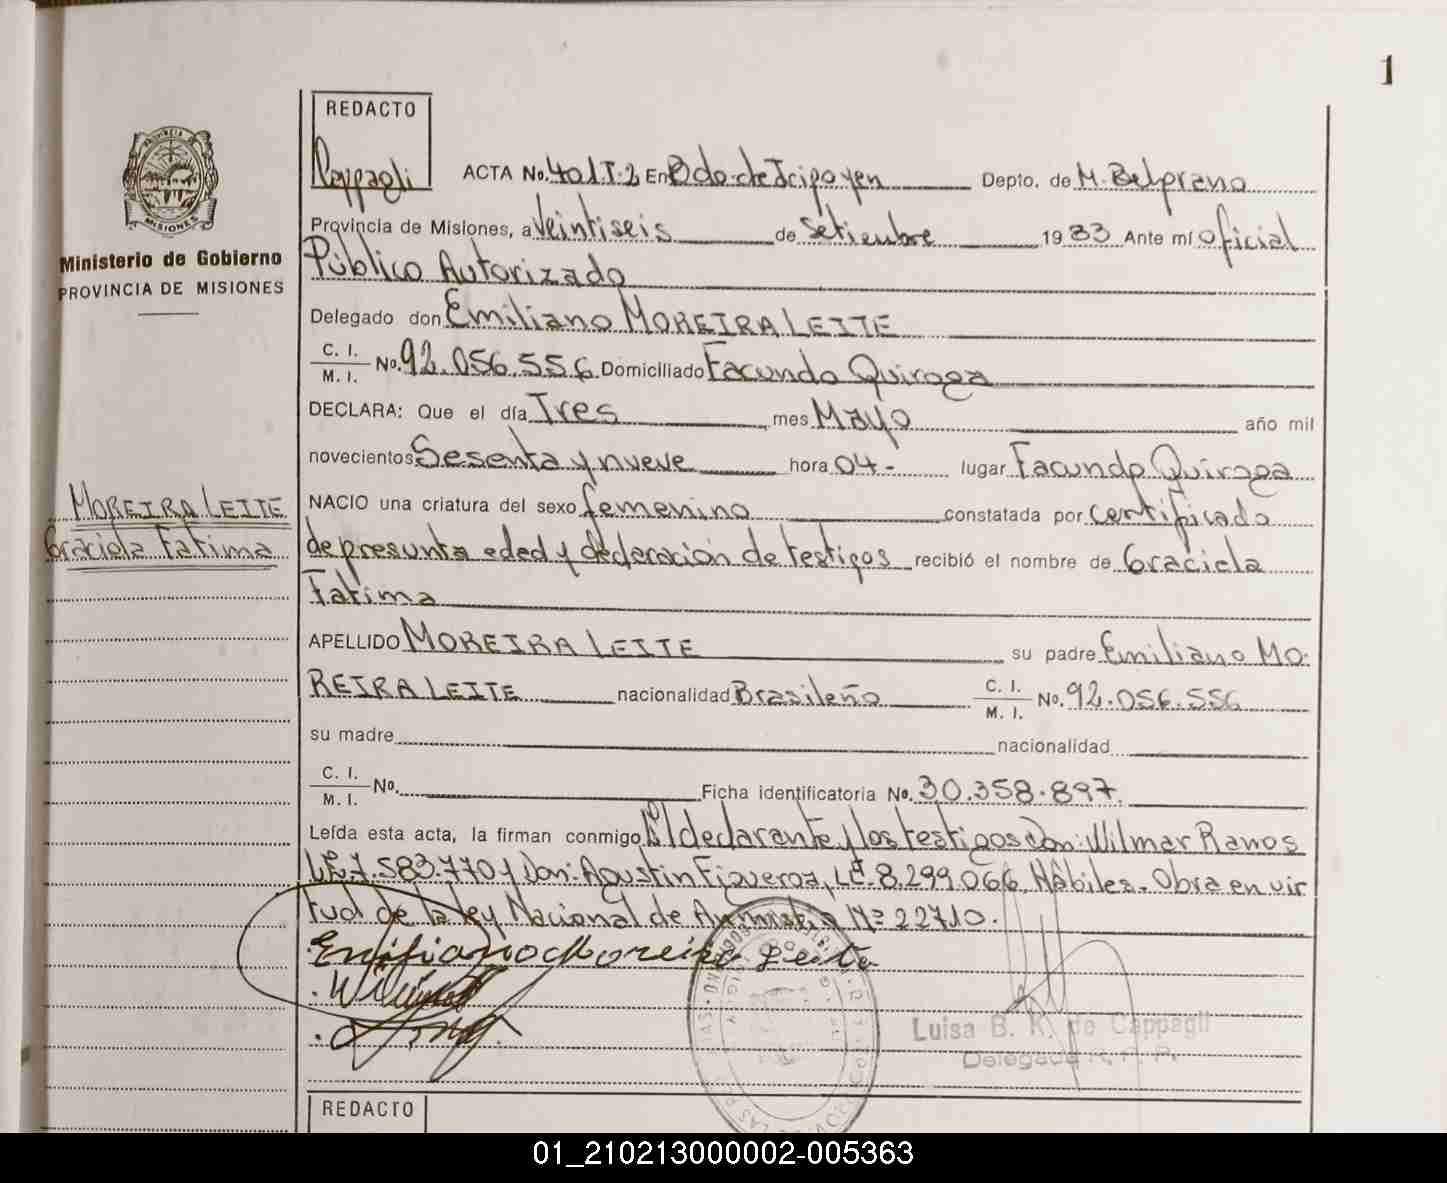 1
REDACTO
Cappagli
ACTA No. 401 T-2 En Bdo. de Irigoyen Depto. de M. Belgrano
Provincia de Misiones, a Veintiseis de Setiembre 19 83 Ante mí Oficial
Público Autorizado
Ministerio de Gobierno
PROVINCIA DE MISIONES
Delegado don Emiliano MOREIRA LEITE
C. I.
M. I. No. 92.056.556 Domiciliado Facundo Quiroga
DECLARA: Que el día Tres mes Mayo año mil
novecientos Sesenta y nueve hora 04- lugar Facundo Quiroga
MOREIRA LEITE
Graciela Fatima
NACIO una criatura del sexo femenino constatada por certificado
de presunta edad y declaración de testigos recibió el nombre de Graciela
Fatima
APELLIDO MOREIRA LEITE su padre Emiliano MO-
REIRA LEITE nacionalidad Brasileño C. I. M. I. No. 92.056.556
su madre nacionalidad
C. I.
M. I. No. Ficha identificatoria No. 30.358.897
Leída esta acta, la firman conmigo El declarante y los testigos Don: Wilmar Ramos
LE. 7.583.770 y Don: Agustin Figueroa, LE. 8.299.066, Hábiles. Obra en vir
tud de la ley Nacional de Amnistia Nº 22710.
Emiliano Moreira Leite
Luisa B. K. de Cappagli
Delegada R. P.
REDACTO
01_210213000002-005363